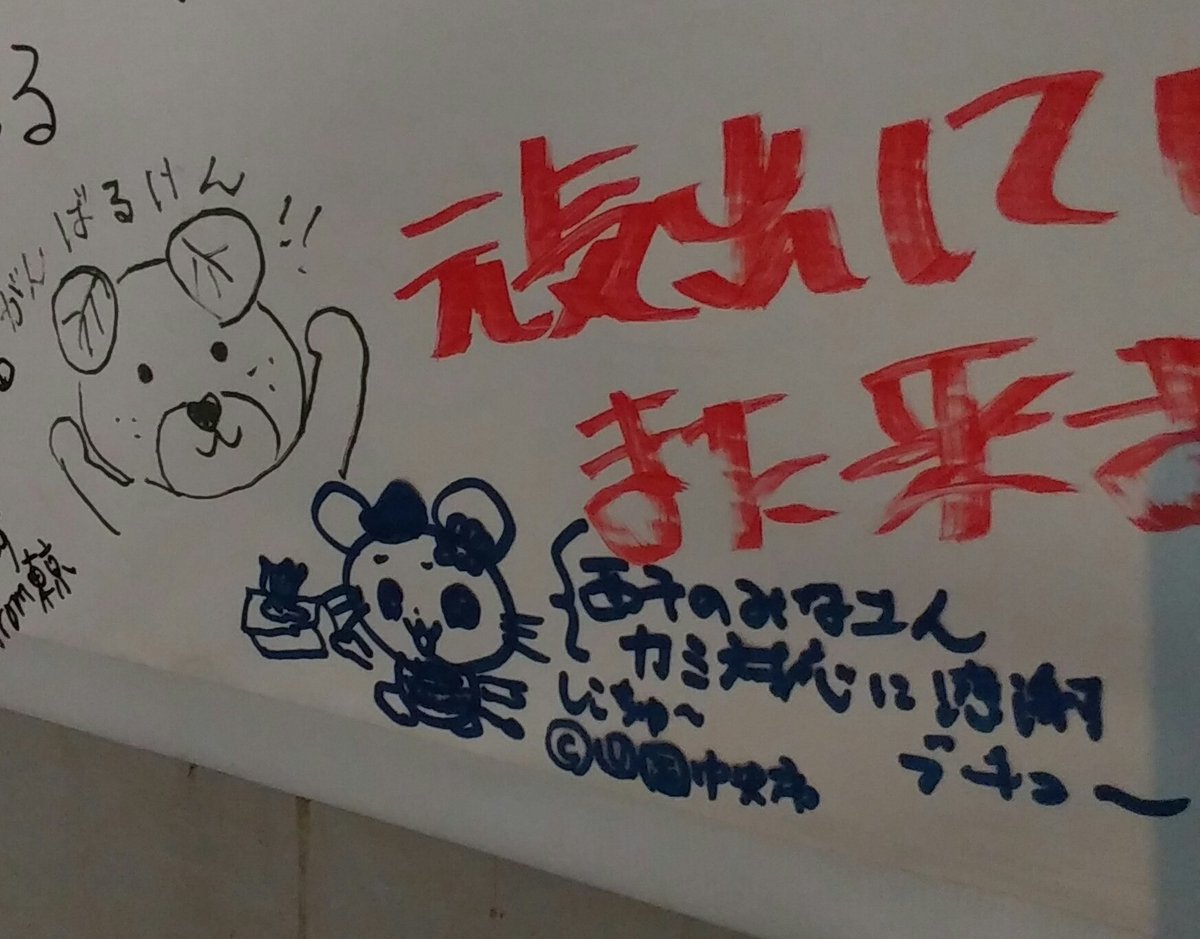 る
がんばるけん!!
元気出して
また来
西予のみなさん
カミ対応に感謝
しこちゅ〜
ブチュー
©四国中央市
東京